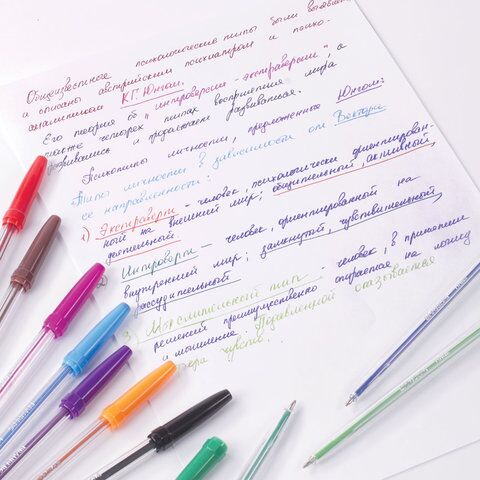 Общеизвестные психологические типы были выявлены
и описаны австрийским психиатром и психо-
аналитиком К.Г. Юнгом.
Его теория об "интроверсии - экстраверсии", а
также четырех типах восприятия мира
развивались и продолжают развиваться.
Психотипы личности, предложенные Юнгом:
Типы личности в зависимости от Вектора
её направленности:
1) Экстраверты - человек, психологически ориентирован-
ной на внешний мир; общительный, активный,
деятельный.
Интроверты - человек, ориентированной на
внутренний мир; замкнутой, чувствительный,
рассудительный
3) Мыслительный тип - человек, в принятии
решений преимущественно опирается на логику
и мышление. Подавленной оказывается
сфера чувств.